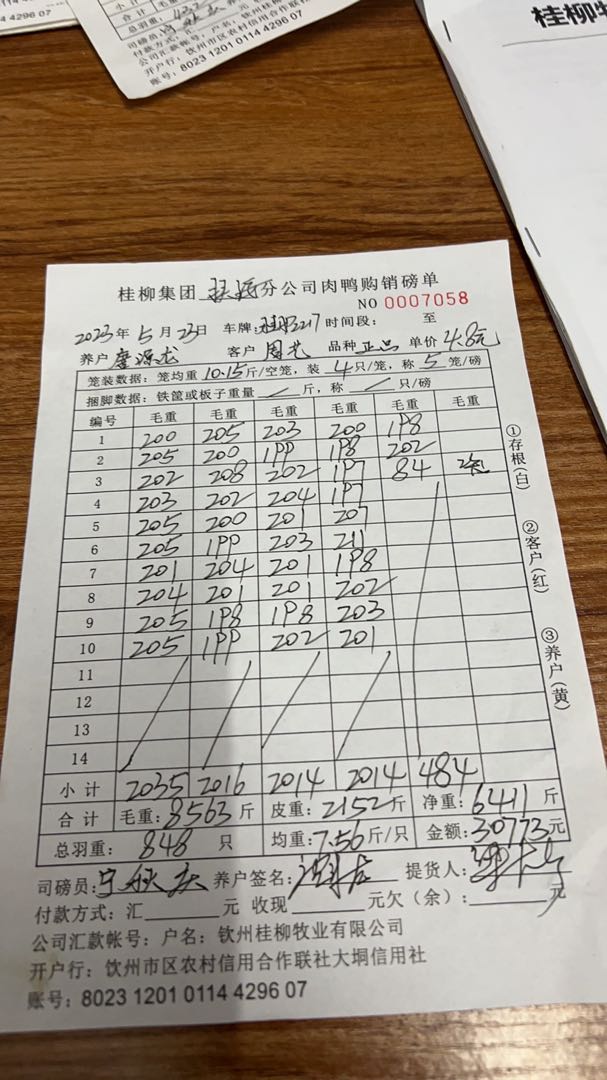 0114
4 4296 07
合计 毛重
总羽重:
司磅员:
付款方式: 汇 元
公司汇款帐号: 户名: 钦州桂柳
开户行: 钦州市区农村信用合作联社
账号: 8023 1201 0114 4296 07
桂柳牧
桂柳集团 分公司肉鸭购销磅单
NO 0007058
2023年5月23日 车牌: 时间段: 至
养户 客户 品种 正品 单价 4.8元
笼装数据: 笼均重 10.15 斤/空笼, 装 4 只/笼, 称 5 笼/磅
捆脚数据: 铁筐或板子重量 斤, 称 只/磅
编号 毛重 毛重 毛重 毛重 毛重 毛重
1 200 205 203 200 198
2 205 200 199 198 202
3 202 208 202 197 84
4 203 202 204 197
5 205 200 201 207
6 205 199 203 211
7 201 204 201 198
8 204 201 201 202
9 205 198 198 203
10 205 199 202 201
11
12
13
14
小计 2035 2016 2014 2014 484
合计 毛重: 8563 斤 皮重: 2152 斤 净重: 6411 斤
总羽重: 848 只 均重: 7.56 斤/只 金额: 30773 元
司磅员: 养户签名: 提货人:
付款方式: 汇 元 收现 元欠(余): 元
公司汇款帐号: 户名: 钦州桂柳牧业有限公司
开户行: 钦州市区农村信用合作联社大垌信用社
账号: 8023 1201 0114 4296 07
①存根(白)
②客户(红)
③养户(黄)